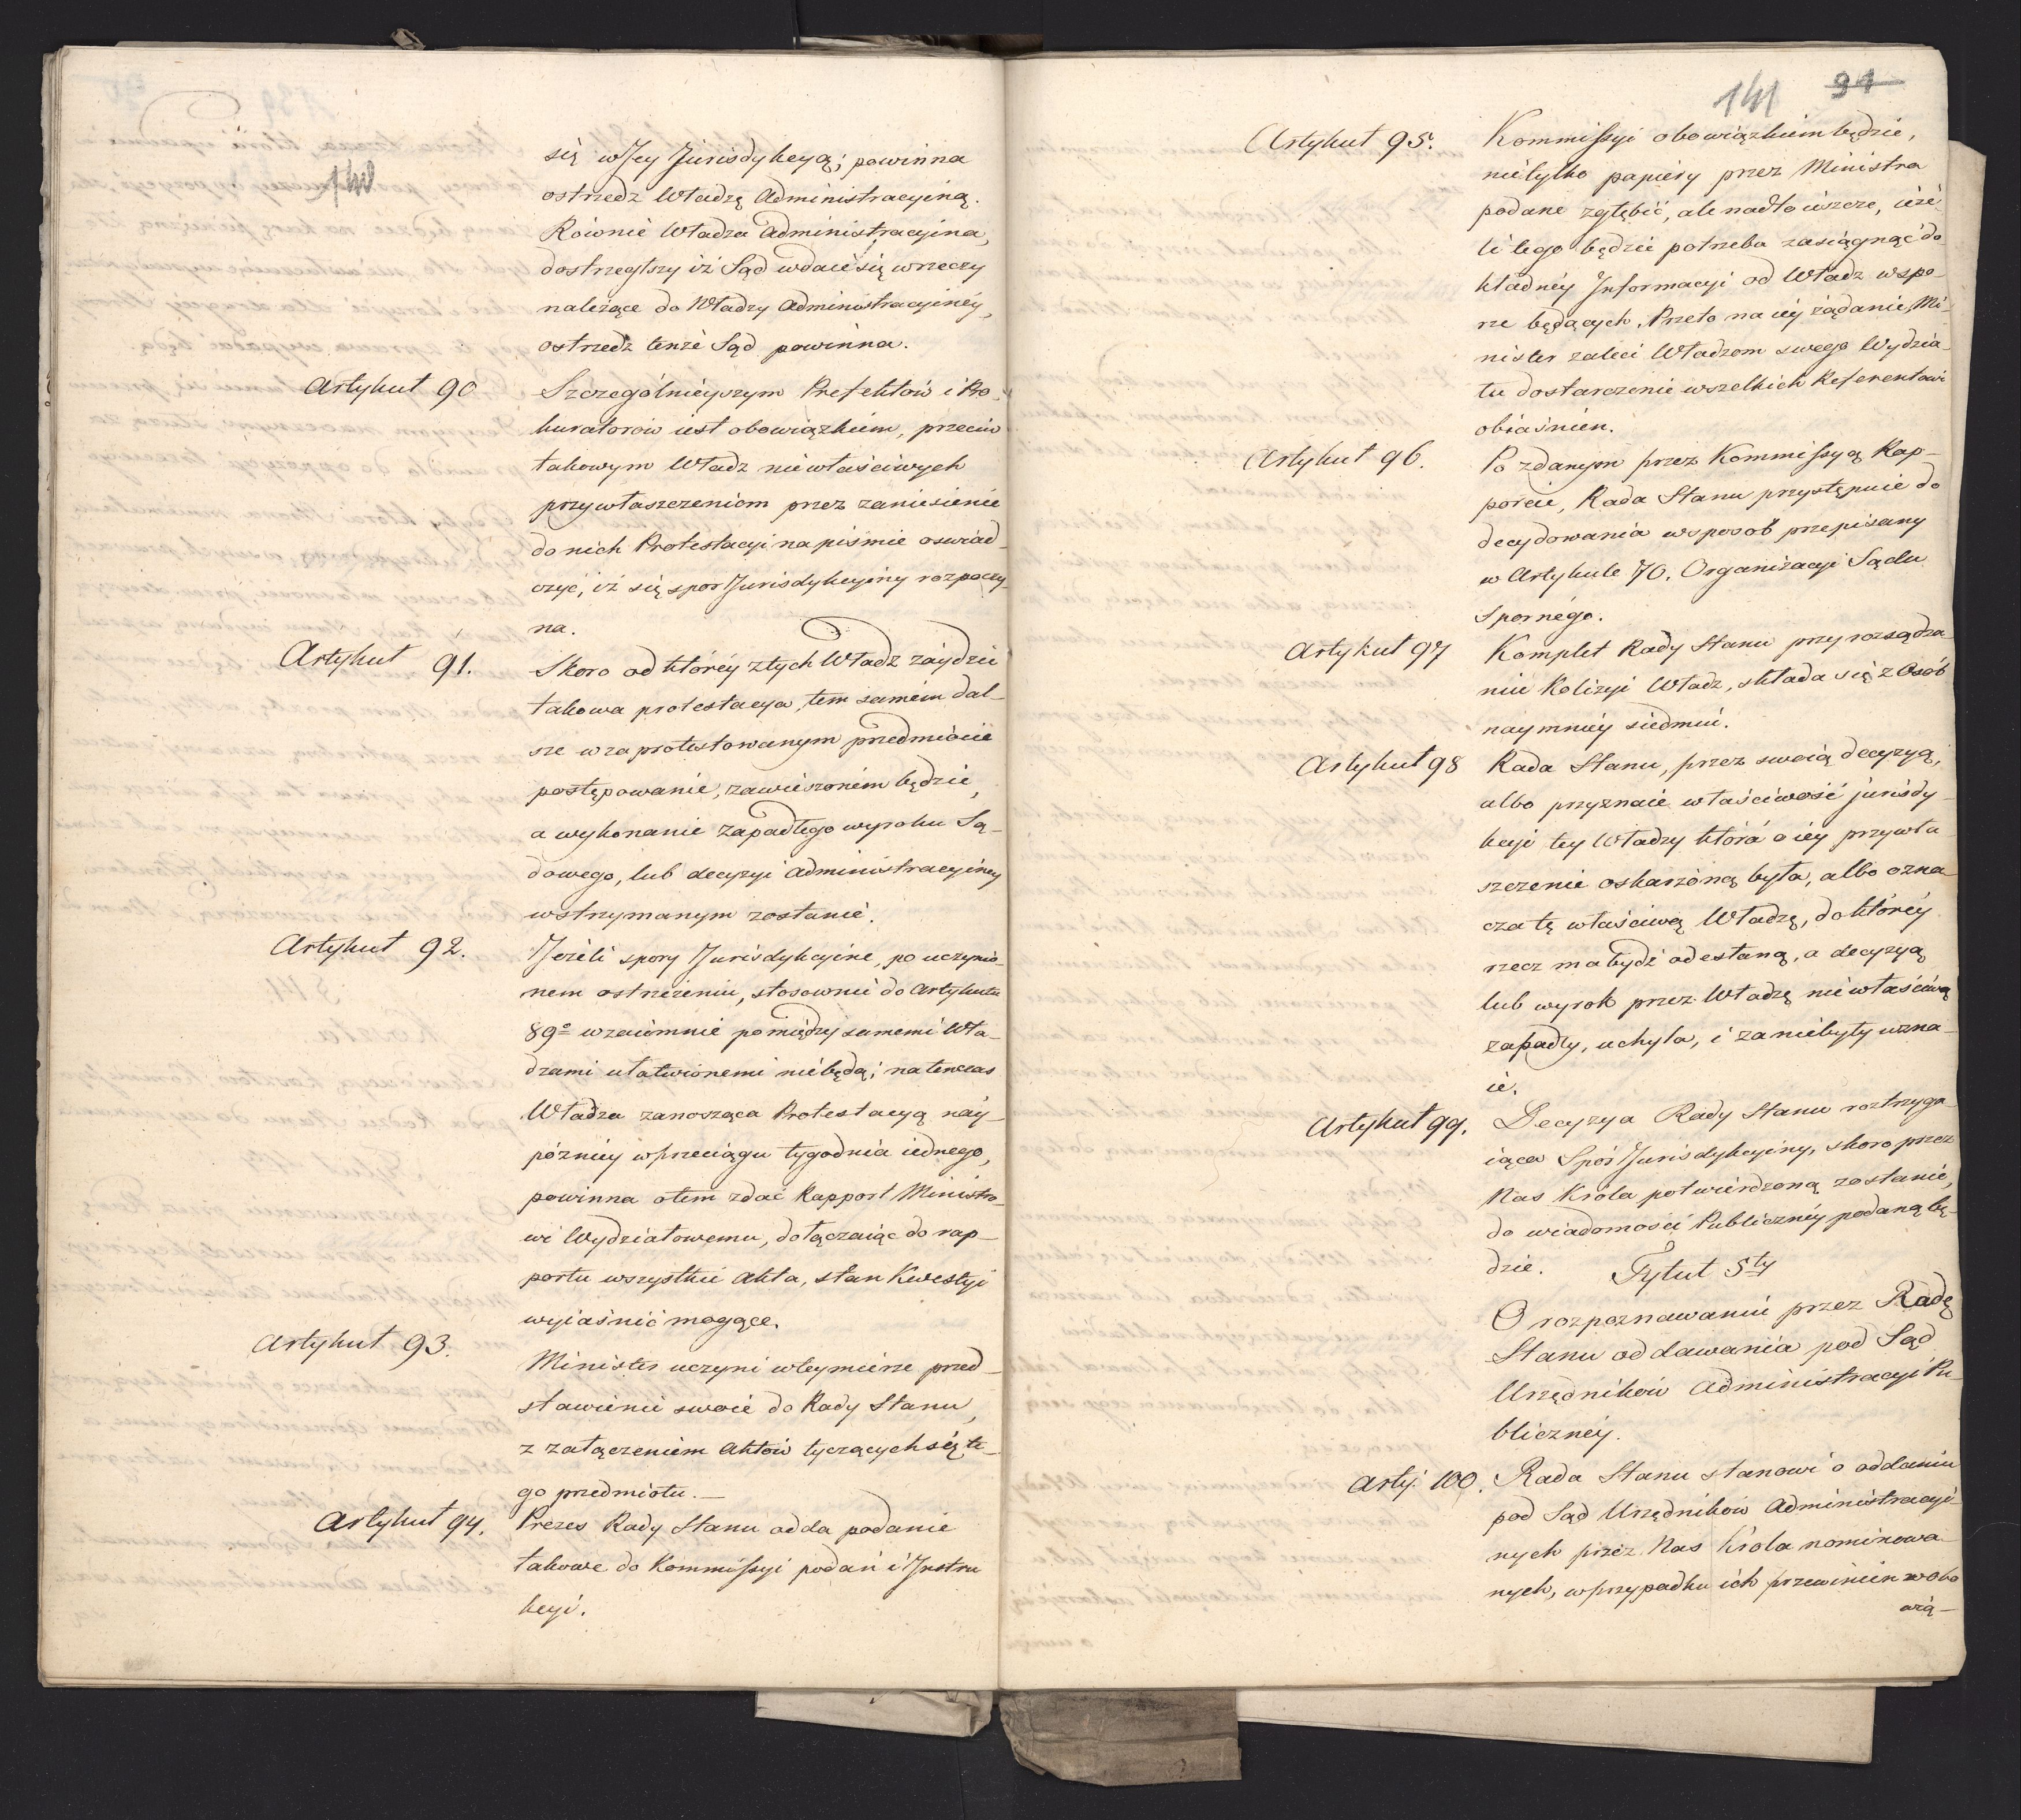 140
się w Jey Jurisdykcyą; powinna
ostrzedz Władzę Administracyiną.
Równie Władza Administracyina,
dostrzegłszy iż Sąd wdaie się w rzeczy
należące do Władzy Administracyiney,
ostrzedz tenże Sąd powinna.
Artykuł 90
Szczególnieyszym Prefektów i Pro-
kuratorów iest obowiązkiem, przeciw
takowym Władz niewłaściwych
przywłaszczeniom przez zaniesienie
do nich Protestacyi na piśmie oświad-
czyć, iż się spor Jurisdykcyiny rozpoczy-
na.
Artykuł 91.
Skoro od któréy z tych Władz zaydzie
takowa protestacya, tem samém dal-
sze w zaprotestowanym przedmiocie
postępowanie, zawieszoném będzie,
a wykonanie zapadłego wyroku Są-
dowego, lub decyzyi administracyiney
wstrzymanym zostanie.
Artykuł 92.
Jeżeli spory Jurisdykcyine, po uczynio-
nem ostrzeżeniu, stosownie do Artykułu
89º wzaiemnie pomiędzy samemi Wła-
dzami ułatwionemi niebędą; natenczas
Władza zanosząca Protestacyą nay-
późniey w przeciągu tygodnia iednego,
powinna otem zdać Rapport Ministro-
wi Wydziałowemu, dołączaiąc do rap-
portu wszystkie Akta, stan Kwestyi
wyiaśnić mogące.
Artykuł 93.
Minister uczyni wteymierze przed-
stawienie swoie do Rady Stanu,
z załączeniem Aktów tyczących się te-
go przedmiotu.—
Artykuł 94.
Prezes Rady Stanu odda podanie
takowe do Kommissyi podań i Instru
kcyi.
141 91
Artykuł 95.
Kommissyi obowiązkiem będzie,
nietylko papiery przez Ministra
podane zgłębić, ale nadto ieszcze, ieże-
li tego będzie potrzeba zasiągnąć do-
kładnéy Informacyi od Władz w spo-
rze będących. Przeto na iéy żądanie, Mi-
nister zaleci Władzom swego Wydzia-
łu dostarczenie wszelkich Referentowi
obiaśnien.
Artykuł 96.
Po zdanym przez Kommissyą Rap-
porcie, Rada Stanu przystępuie do
decydowania w sposob przepisany
w Artykule 70. Organizacyi Sądu
Spornégo.
Artykuł 97
Komplet Rady Stanu przy rozsądza-
niu Kolizyi Władz, składa się z Osób
naymniéy siedmiu.
Artykuł 98
Rada Stanu, przez swoią decyzyą,
albo przyznaie właściwość jurisdy-
kcyi tey Władzy która o iéy przywła
szczenie oskarżoną była, albo ozna-
cza tę właściwą Władzę, do któréy
rzecz ma bydź odesłaną, a decyzyą
lub wyrok przez Władzę niewłaściwą
zapadły, uchyla, i za niebyły uzna-
ie.
Artykuł 99.
Decyzya Rady Stanu roztrzyga-
iąca Spór Jurisdykcyiny, skoro przez
Nas Króla potwierdzoną zostanie,
do wiadomości Publicznéy podaną bę-
dzie.
Tytuł 5ty
O rozpoznawaniu przez Radę
Stanu oddawania pod Sąd
Urzędników Administracyi Pu-
blicznéy.
Arty: 100.
Rada Stanu stanowi o oddaniu
pod Sąd Urzędników Administracyi-
nych przez Nas Króla nominowa-
nych, w przypadku ich przewinien w obo
wią-